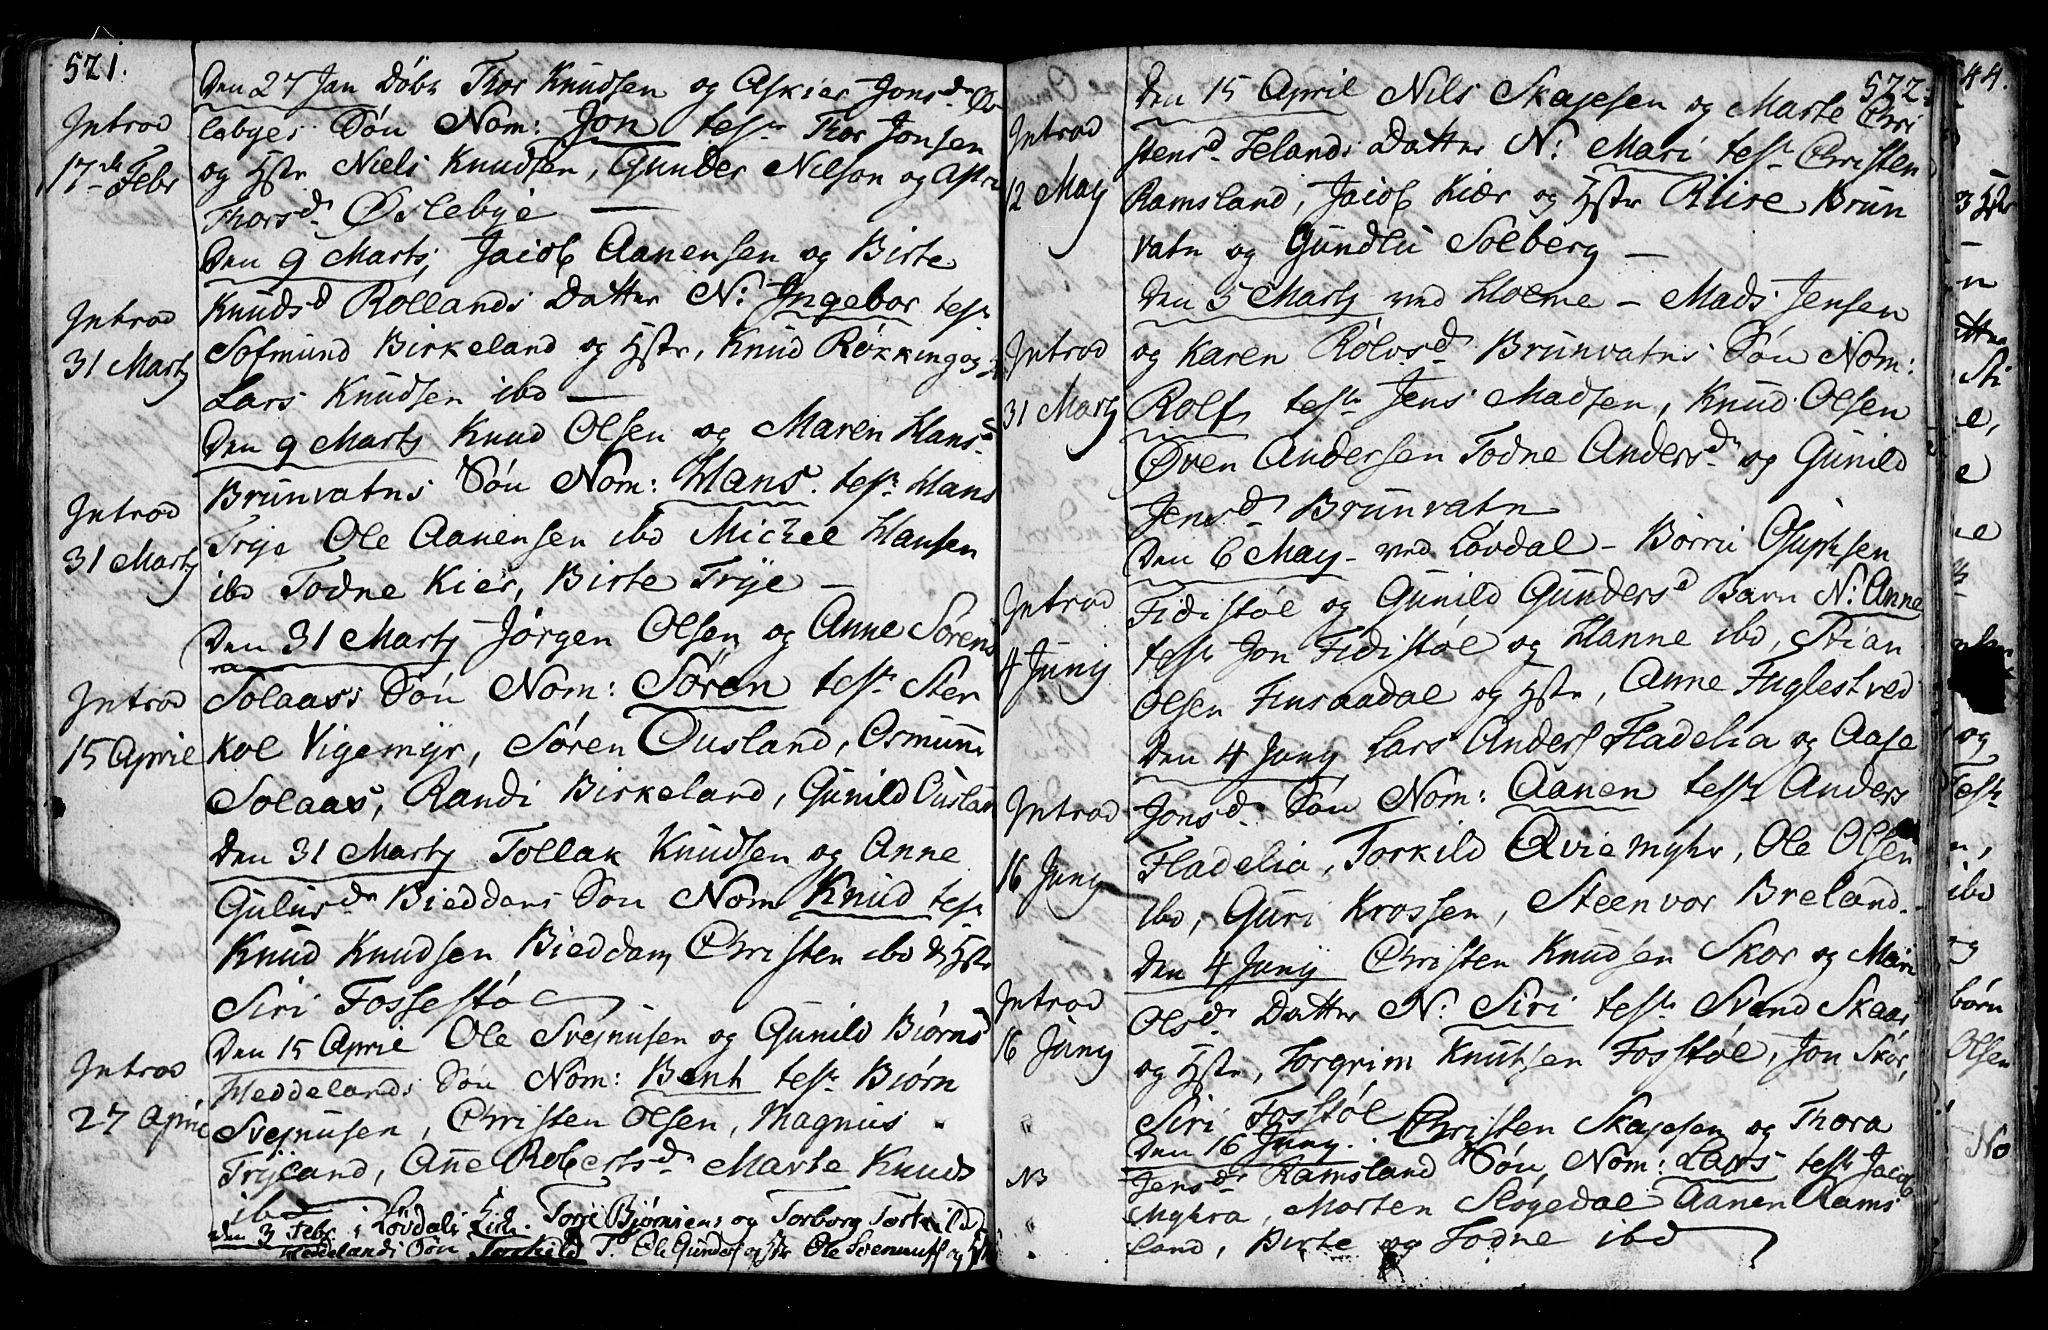 521.
Den 27 Jan Döbt Thor Knudsen og Askier Jonsdr Ös
lebyes Sön Nom: Jon test. Thor Jonsen
og Hstr Niels Knudsen, Gunder Nilson og Astri
Thorsdr Öslebye —
Introd
17de Febr
Den 9 Martj, Jacob Aanensen og Birte
Knudsd Röllands Datter N: Ingebor test.
Sofmund Birkeland og Hstr, Knud Rökking og
Lars Knudsen ibd —
Introd
31 Martj
Den 9 Martj Knud Olsen og Maren Hansd
Brunvatns Sön Nom: Hans. test. Hans
Trye Ole Aanensen ibd Michel Hansen
ibd Todne Kier, Birte Trye —
Introd
31 Martj
Den 31 Martj Jörgen Olsen og Anne Sörens
Solaass Sön Nom: Sören test. Ster
kol Vigemyr, Sören Ousland, Osmund
Solaas, Randi Birkeland, Gunild Ousland
Introd
15 April
Den 31 Martj Tollak Knudsen og Anne
Gulusdr Bieddoms Sön Nom Knud test.
Knud Knudsen Bieddom, Christen ibd & Hstr
Siri Fossestöl
Den 15 April Ole Svejnusen og Gunild Biörnsd
Heddelands Sön Nom: Bent test. Biörn
Svejnusen, Christen Olsen, Magnus
Tryland, Ane Robertsdr Marte Knuds
ibd
Introd
27 April
Den 3 Febr i Lövdals Kirk. Torje Björnsens og Torborg Torkildsd
Heddelands Sön Torkild T. Ole Gunders og Hstr Ole Svenuns og
522.
Den 15 April Nils Skajesen og Marte Chri
stensd. Helands Datter N: Mari test. Christen
Ramsland, Jacob Kiær og Hstr Rlise Brun
vatn og Gundlu Solberg —
Introd
12 May
Den 5 Martj ved Holme — Mads Jensen
og Karen Rolvsd Brunvatns Sön Nom:
Rolf, test. Jens Madsen, Knud Olsen
Öven Andersen Todne Andersdr og Gunild
Jensdr Brunvatn
Introd
31 Martj
Den 6 May — ved Lövdal — Börru Gupsen
Fidistöl og Gunild Gundersd Barn N: Anne
test. Jon Fidistöl og Hanne ibd, Stian
Olsen Finsaadal og Hstr, Anne Fuglestved
Introd
4 Junij
Den 4 Junj Lars Anders Fladelia og Aase
Jonsdr Sön Nom: Aanen test. Anders
Fladelia, Torkild Qviemyhr, Ole Olsen
ibd, Guri Krossen, Steenvor Breland.
Introd
16 Junj
Den 4 Junij Christen Knudsen Skor og Mari
Olsdr Datter N: Siri test. Svend Skaar
og Hstr, Torgrim Knutsen Fosstöl, Jon Skor,
Siri Fosstöl
Introd
16 Junj
Den 16 Junj. Christen Skajesen og Thora
Jensdr Ramsland Sön, Nom: Lars test. Jacob
Myhra, Morten Slögedal Aanen Rams
land, Birte og Todne ibd
NB
44.